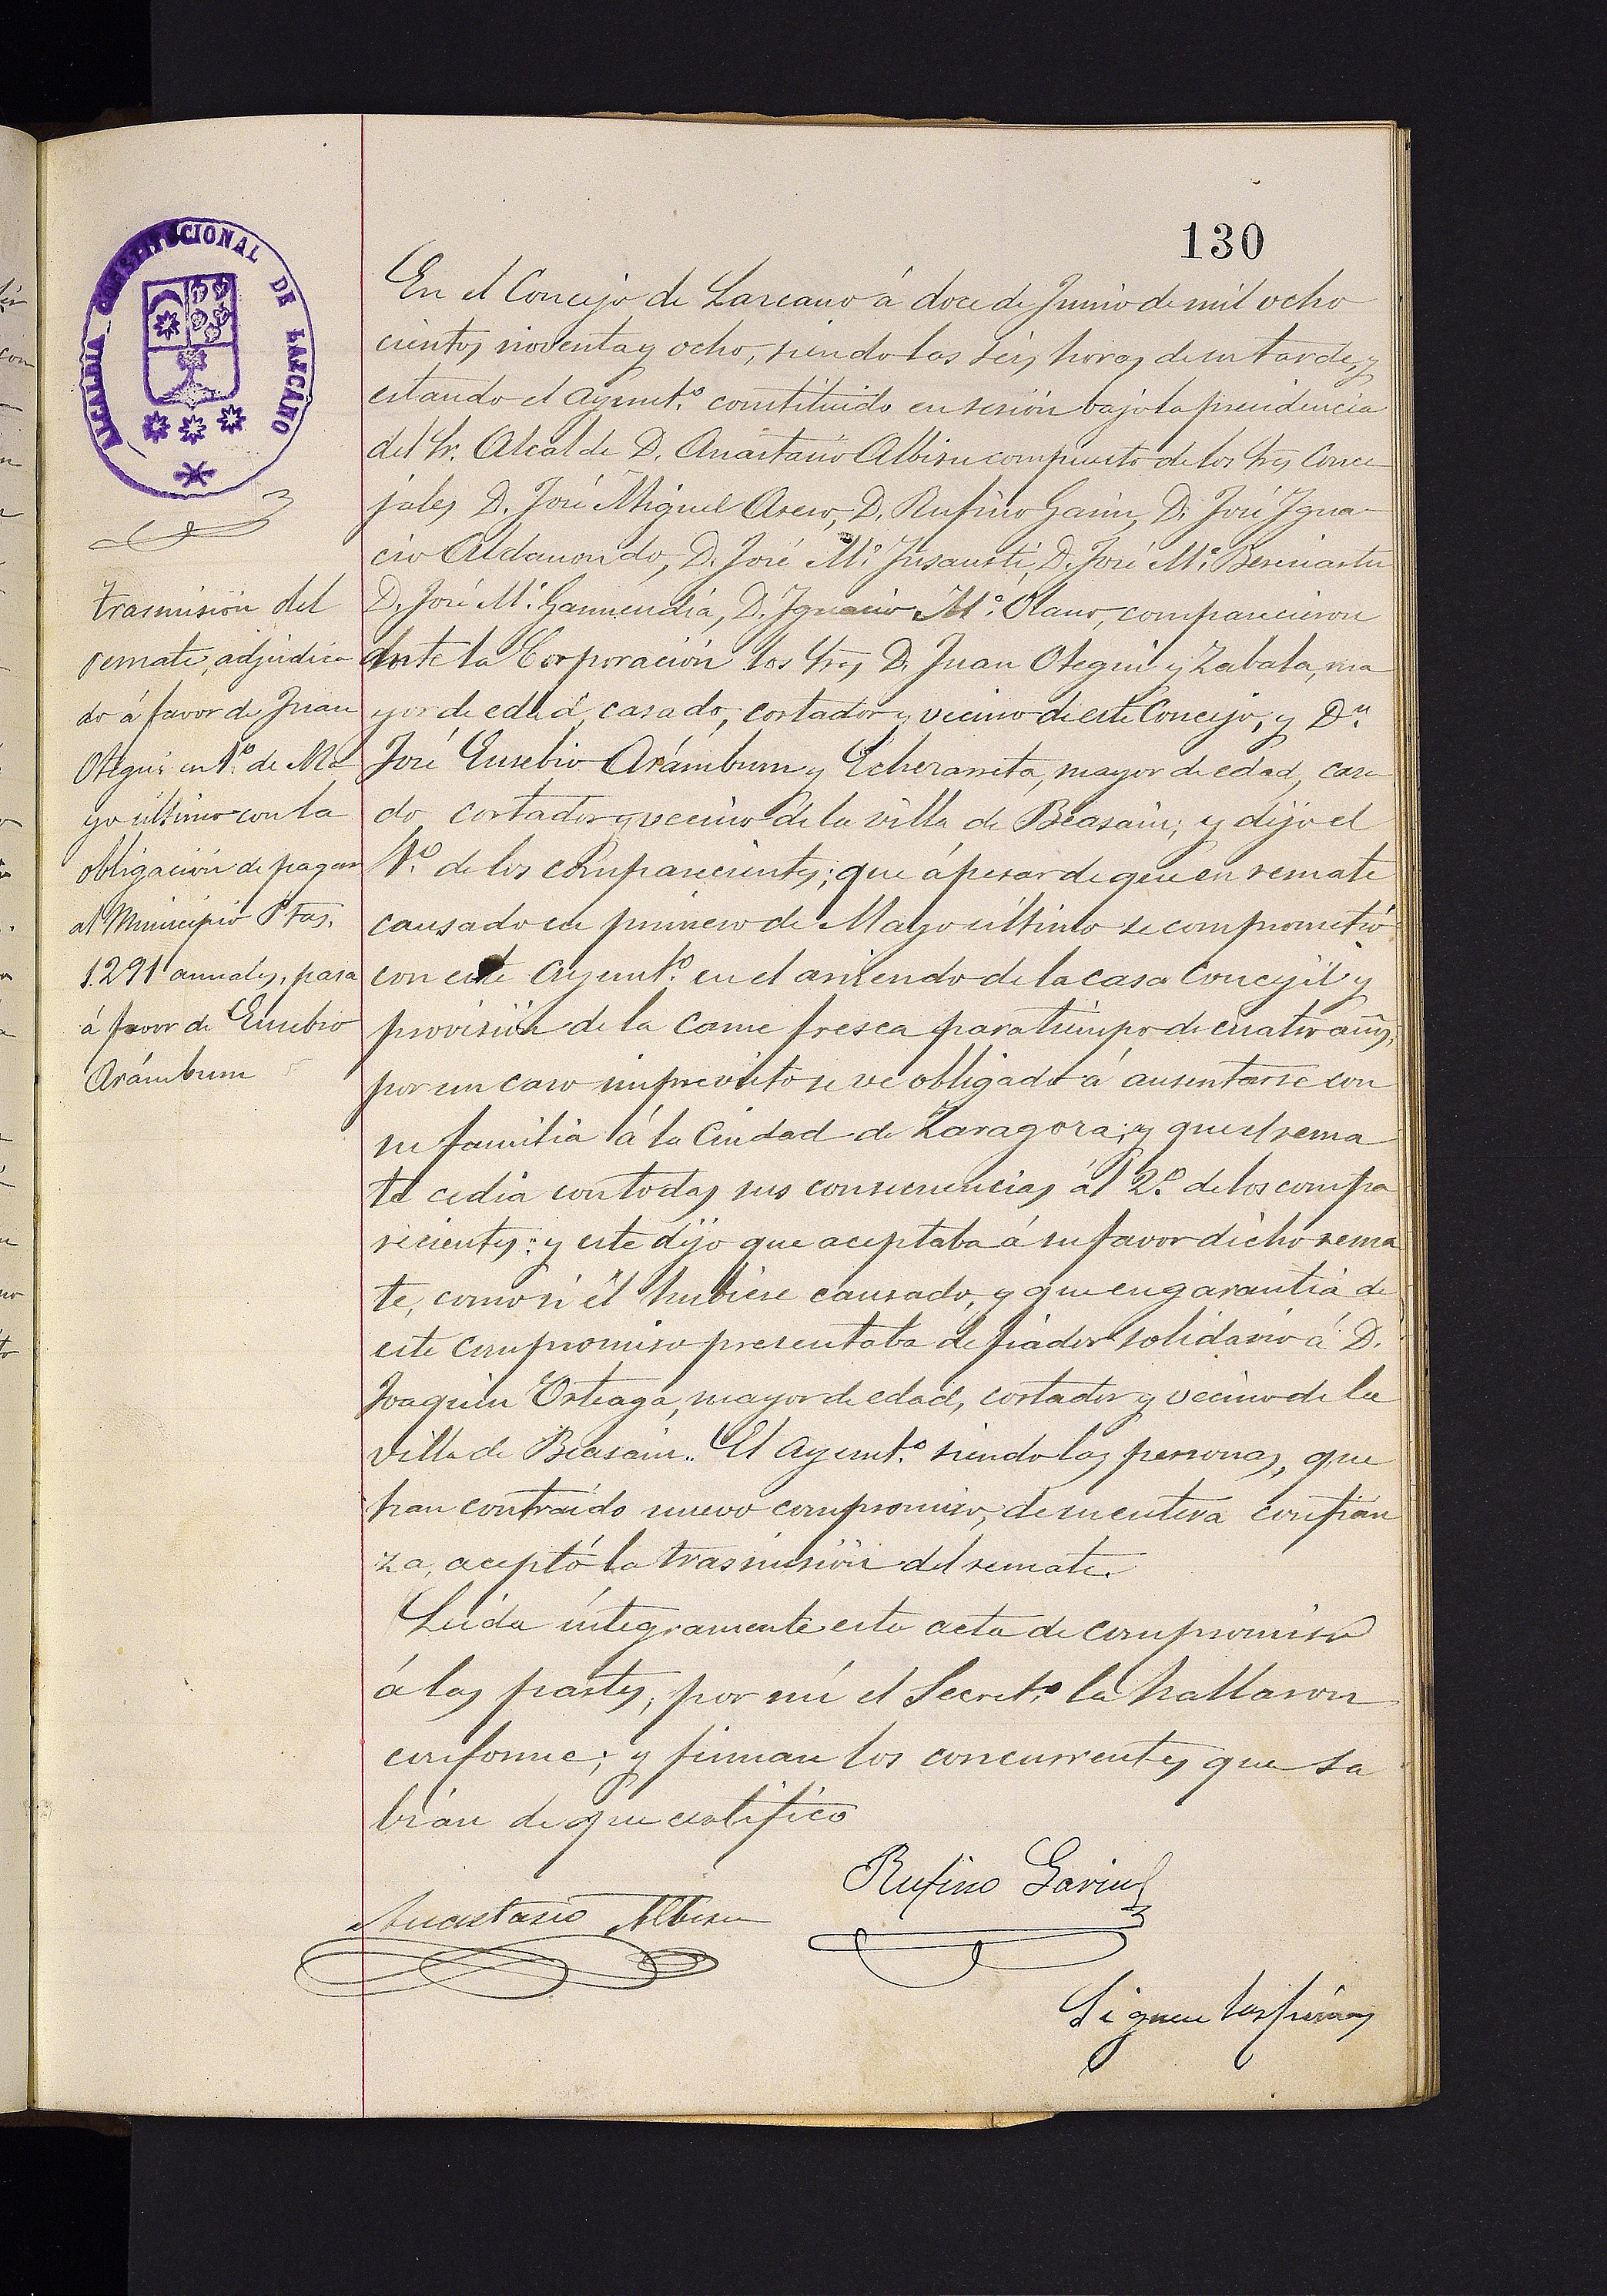 130
ALCALDIA CONSTITUCIONAL DE LAZCANO
trasmisión del
remate, adjudica
do á favor de Juan
Otegui en 1º. de Ma
yo último con la
obligación de pagar
al Municipio Ptas.
1.291 anuales, pasa
á favor de Eusebio
Arámburu
En el Concejo de Lazcano á doce de Junio de mil ocho
cientos noventa y ocho, siendo las seis horas de su tarde, y
estando el Ayunt.º constituido en sesión bajo la presidencia
del Sr. Alcalde D. Anastasio Albisu compuesto de los Sres Conce
jales D. José Miguel Aseso, D. Rufino Garin, D. José Igna-
cio Aldanondo, D. José M.ª Insausti, D. José M.ª Beriniartu
D. José M.ª Garmendia, D. Ignacio M.ª Olano, comparecieron
ante la Corporación los Sres D. Juan Otegui y Zabala, ma
yor de edad, casado, cortador y vecino de este Concejo, y Dn.
José Eusebio Arámburu y Echezarreta, mayor de edad, casa
do cortador y vecino de la villa de Beasain; y dijo el
1º. de los comparecientes; que á pesar de que en remate
causado en primero de Mayo último se comprometió
con este Ayunt.º en el arriendo de la casa Concejil y
provisión de la carne fresca para tiempo de cuatro años,
por un caso imprevisto se ve obligado á ausentarse con
su familia á la Ciudad de Zaragoza; y que el rema
te cedia con todas sus consecuencias ál 2º. de los compa
recientes: y este dijo que aceptaba á su favor dicho rema
te, como si él hubiese causado, y que en garantia de
este compromiso presentaba de fiador solidario á D.
Joaquin Orteaga, mayor de edad, cortador y vecino de la
villa de Beasain. El Ayunt.º siendo las personas, que
han contraido nuevo compromiso, de su entera confian
za, aceptó la trasmisión del remate.
Leida íntegramente esta acta de compromiso
á las partes, por mí el Secret.º la hallaron
conforme; y firman los concurrentes que sa
bian de que certifico
Anastasio Albisu
Rufino Garin
Siguen las firmas